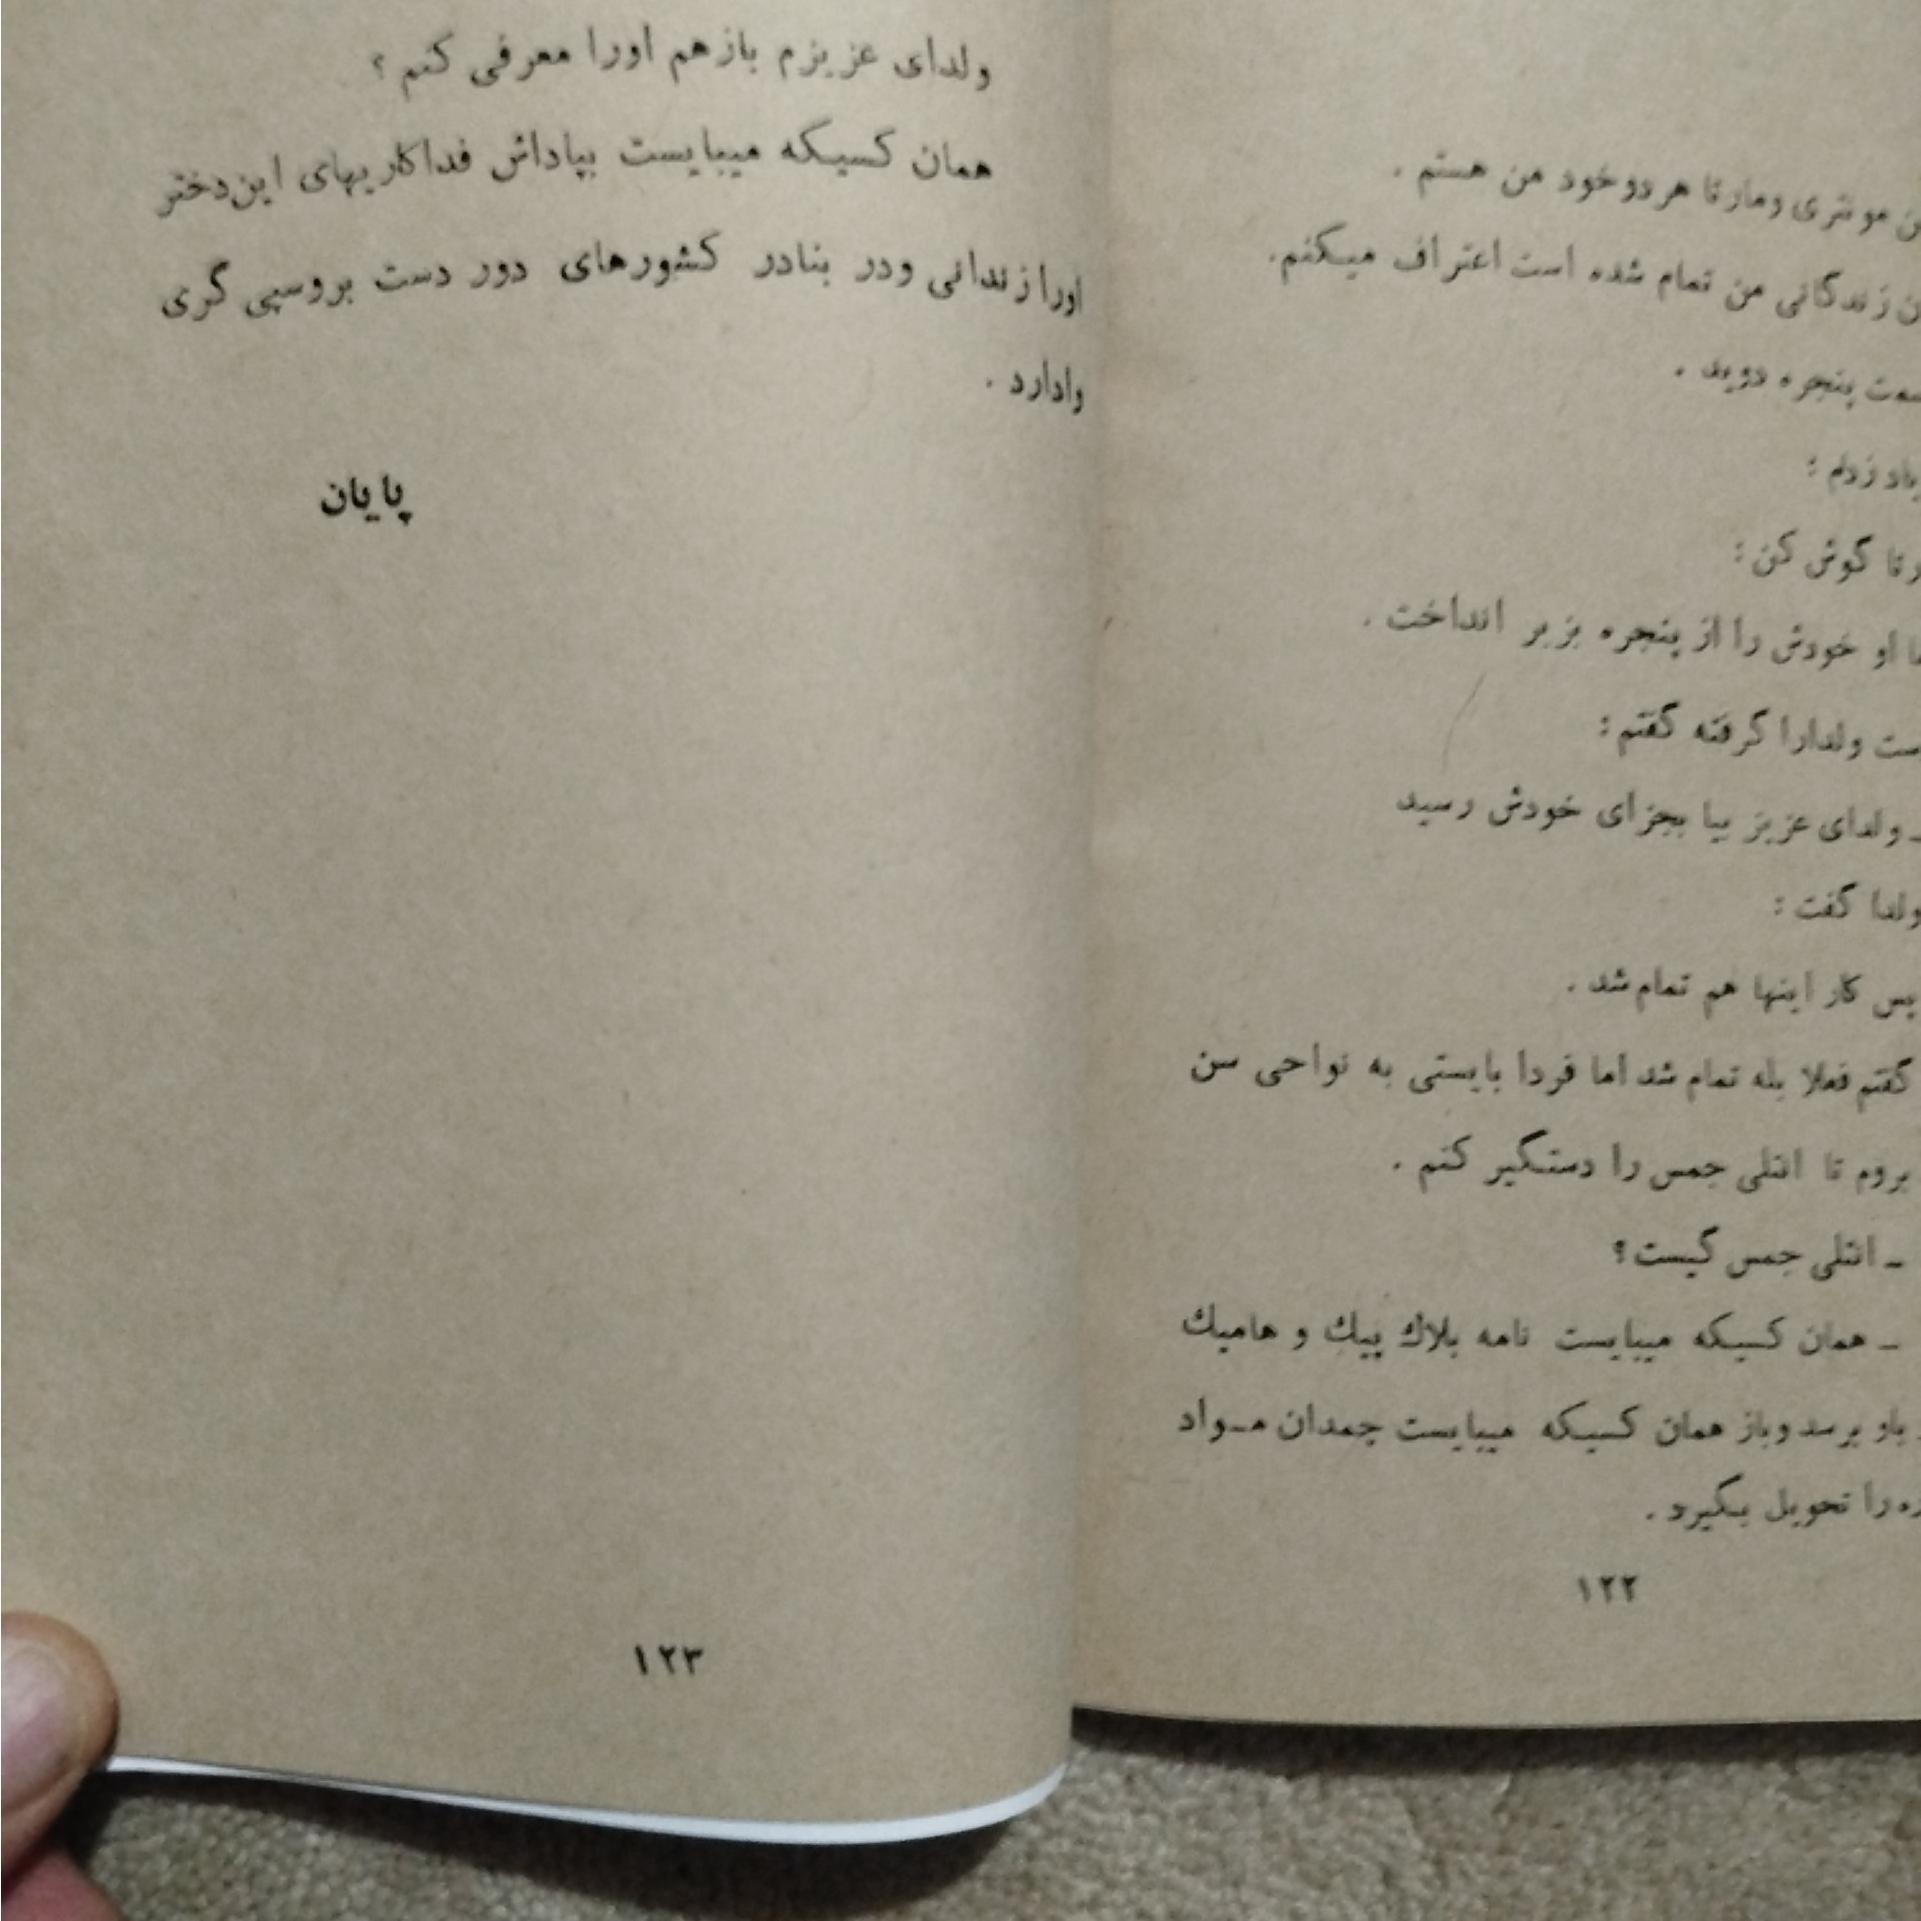 مونتری ومارتا هردوخود من هستم .
زندگانی من تمام شده است اعتراف میکنم.
پنجره دوید .
زدم :
گوش کن :
او خودش را از پنجره بزیر انداخت .
ولدارا گرفته گفتم :
ـ ولدای عزیز بیا بجزای خودش رسید
ولدا گفت :
پس کار اینها هم تمام شد .
گفتم فعلا بله تمام شد اما فردا بایستی به نواحی سن
بروم تا انتلی جمس را دستگیر کنم .
ـ انتلی جمس کیست ؟
ـ همان کسیکه میبایست نامه بلاك پیك و هامیك
باو برسد وباز همان کسیکه میبایست چمدان مـواد
را تحویل بگیرد .
۱۲۲
ولدای عزیزم بازهم اورا معرفی کنم ؟
همان کسیکه میبایست بپاداش فداکاریهای این‌دختر
اورا زندانی ودر بنادر کشورهای دور دست بروسپی گری
وادارد .
پایان
۱۲۳